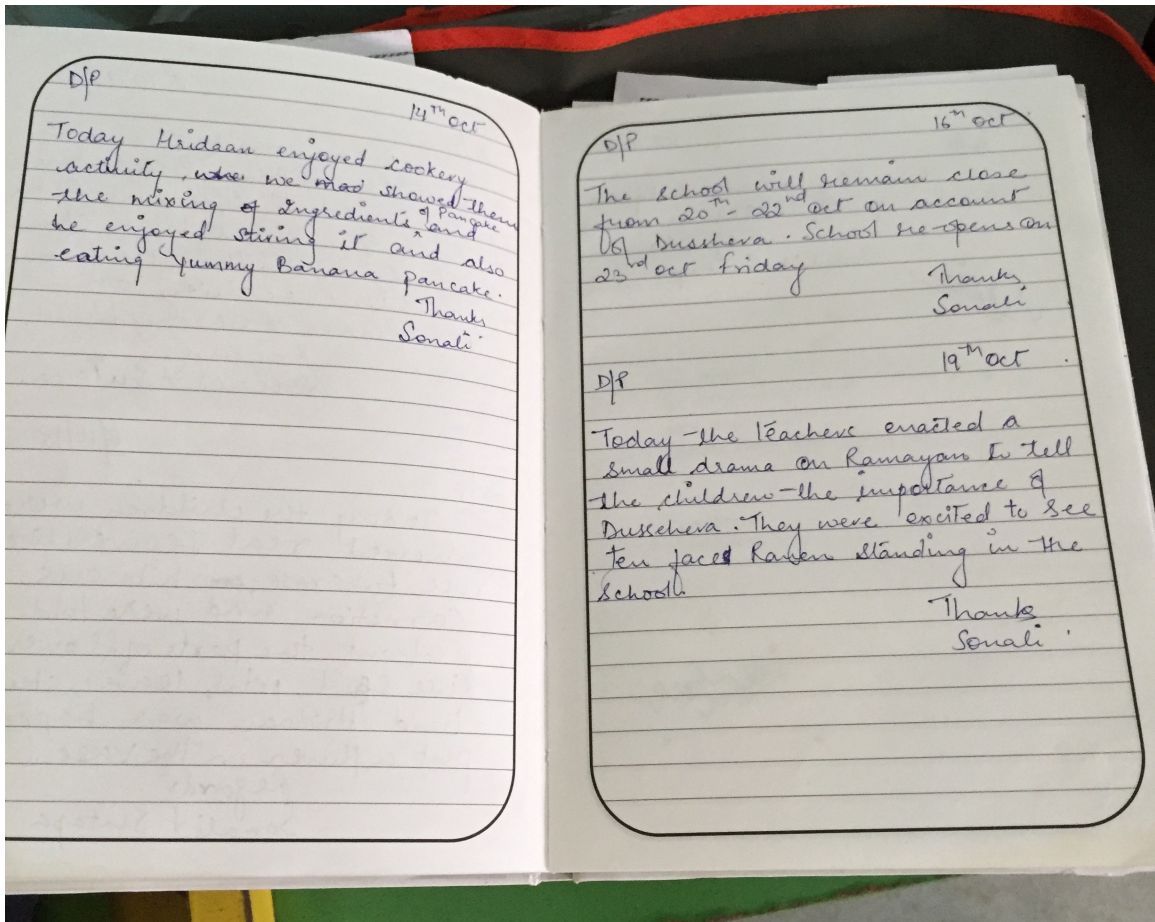 D/P
14th Oct
Today Hridaan enjoyed cookery
activity, we showed them
the mixing of Ingredients of Pancake and
he enjoyed stiring it and also
eating Yummy Banana Pancake.
Thanks
Sonali
D/P
16th Oct
The school will remain close
from 20th - 22nd Oct on account
of Dusshera. School re-opens on
23rd Oct friday
Thanks
Sonali
19th Oct
D/P
Today the teachers enacted a
small drama on Ramayan to tell
the children the importance of
Dussehera. They were excited to see
ten faced Raven standing in the
school.
Thanks
Sonali